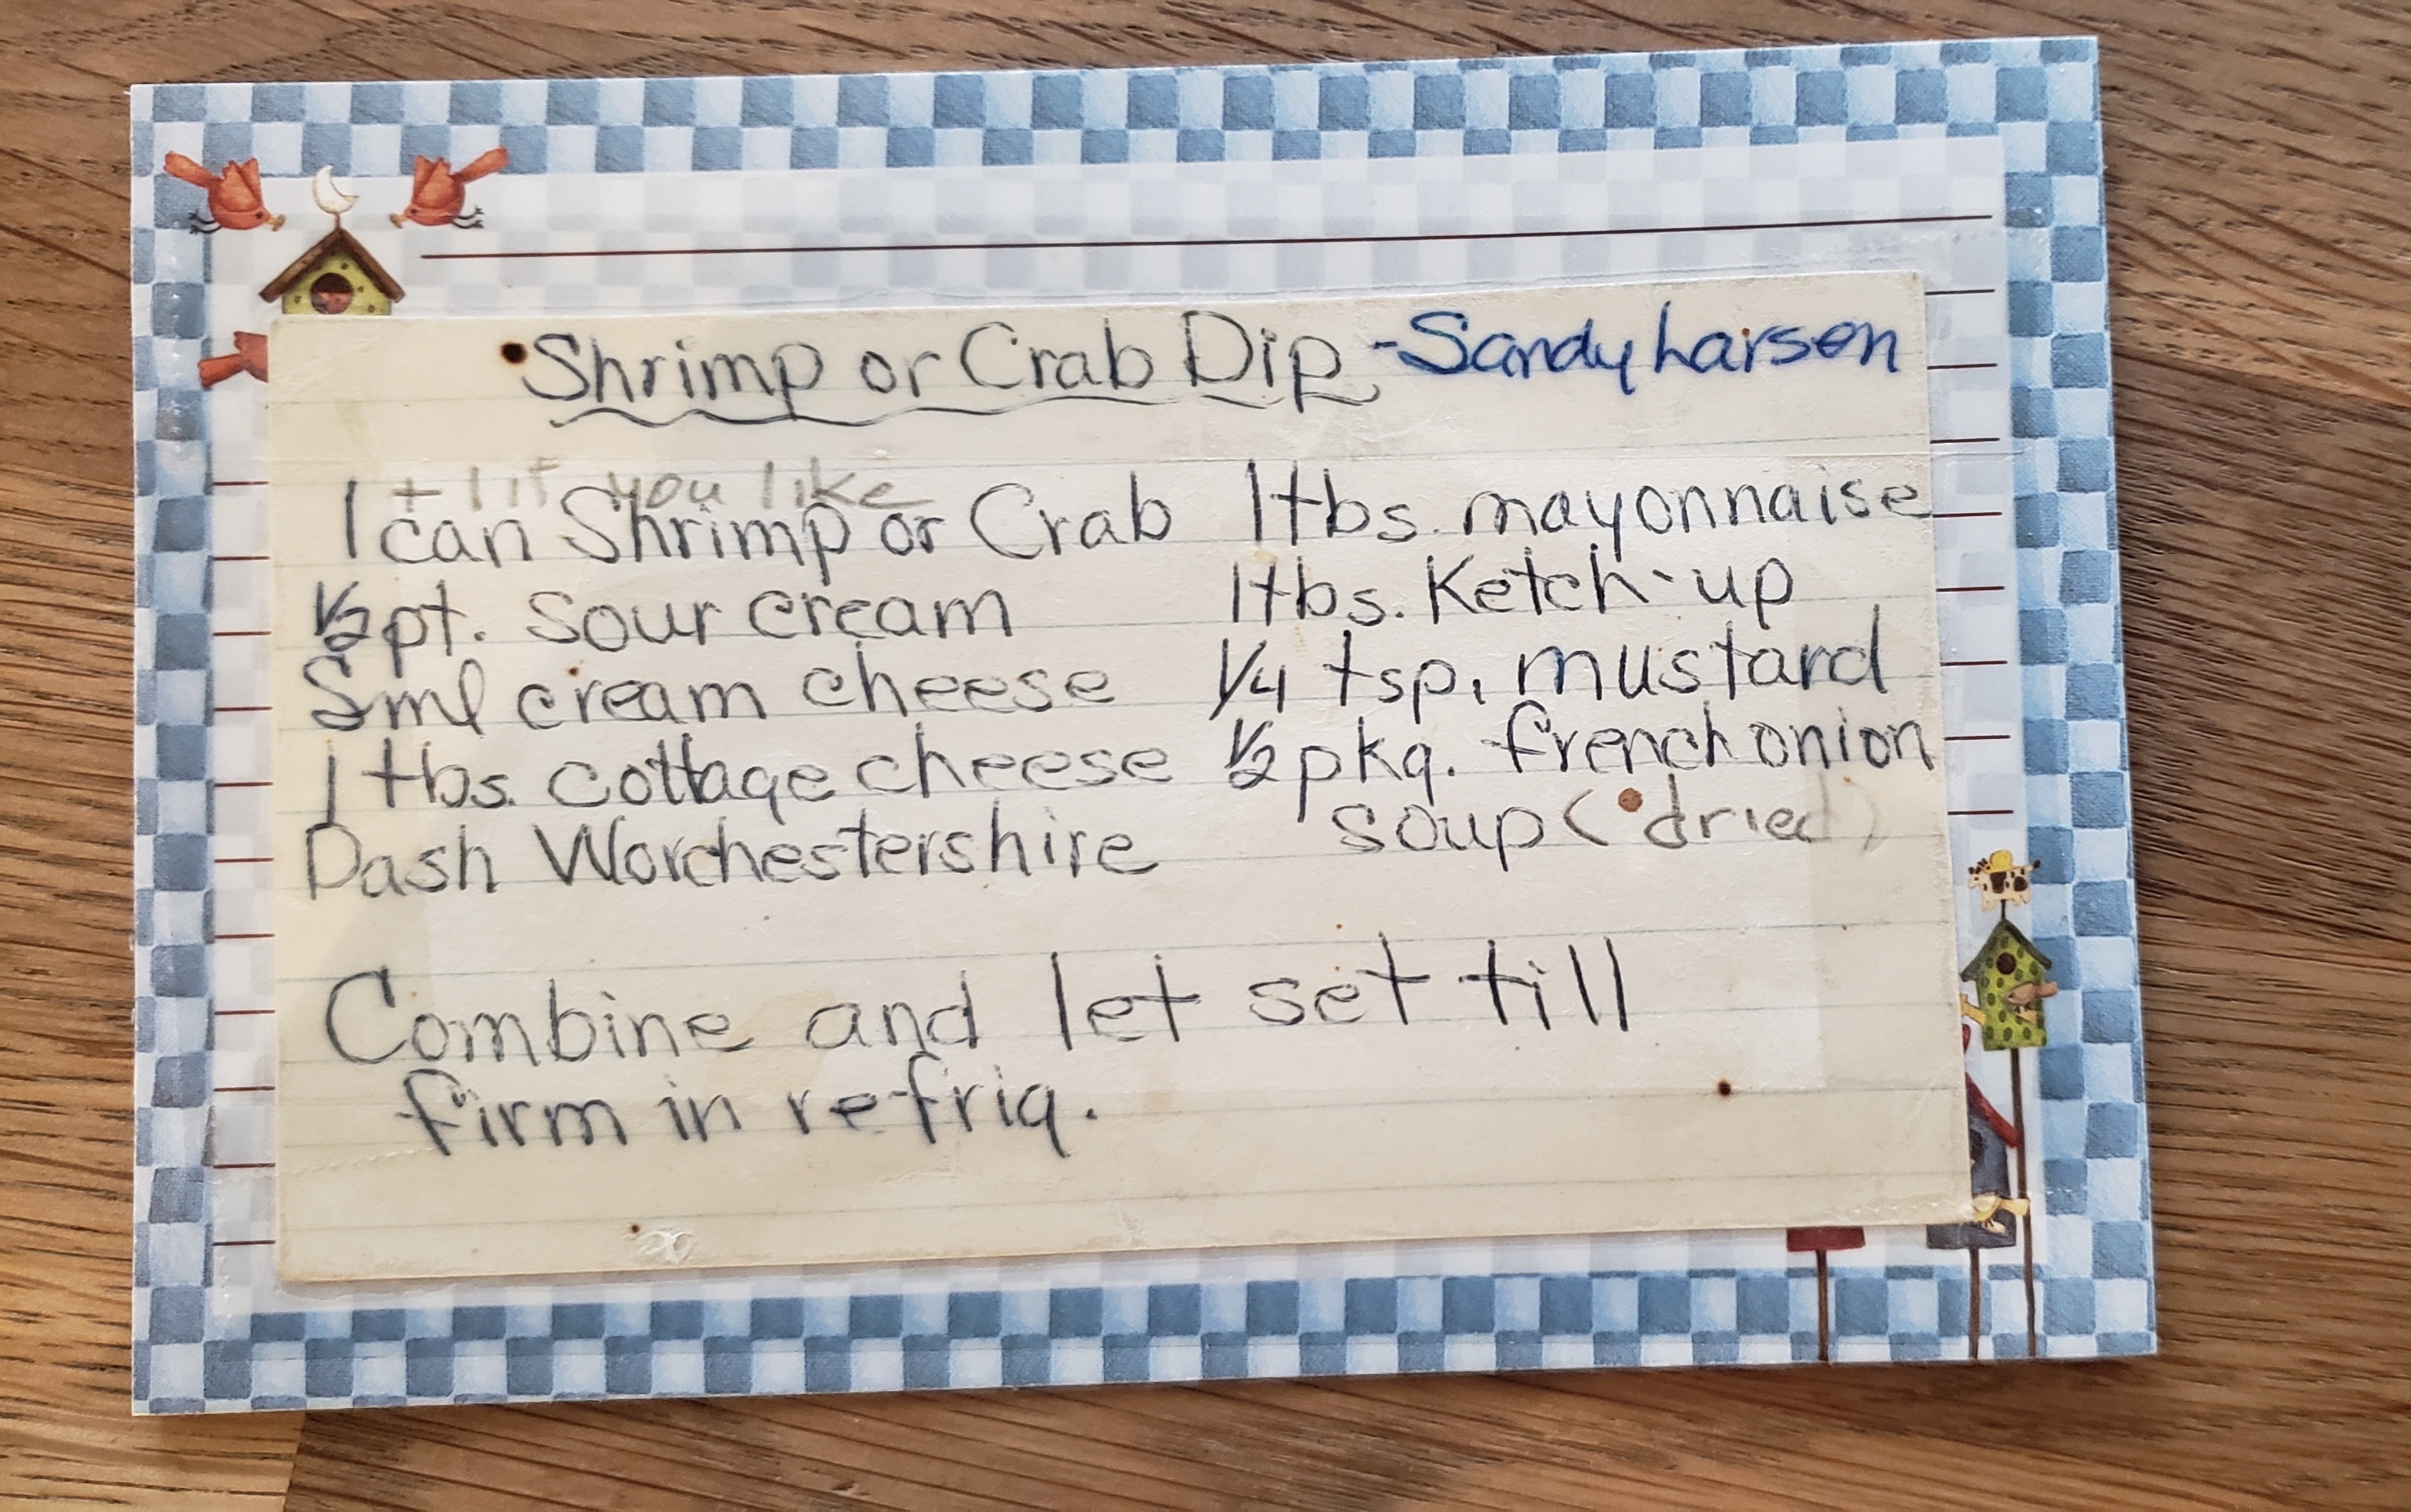 Shrimp or Crab Dip - Sandy Larsen
+ 1 if you like
1 can Shrimp or Crab
½ pt. sour cream
Sml cream cheese
1 tbs. cottage cheese
Dash Worchestershire
1 tbs. mayonnaise
1 tbs. Ketch-up
¼ tsp. mustard
½ pkg. french onion
soup (dried)
Combine and let set till
firm in refrig.